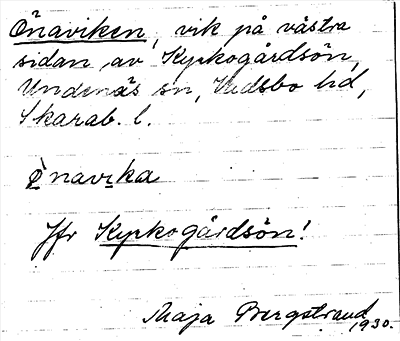 Önaviken, vik på västra
sidan av Kyrkogårdsön,
Undenäs sn, Vadsbo hd,
Skarab. l.
ö̀navika
Jfr Kyrkogårdsön!
Maja Bergstrand
1930.